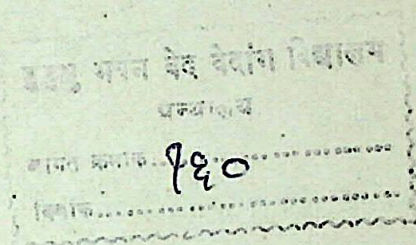 मुमुक्षु भवन वेद वेदांग विद्यालय
ग्रन्थालय
आगत क्रमांक.......१६०..................
दिनांक........................................